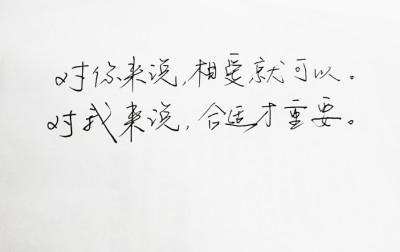 对你来说,相爱就可以。
对我来说,合适才重要。